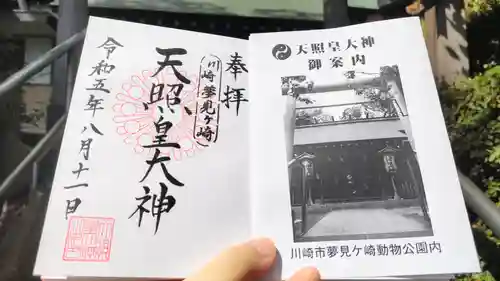 奉拝
(川崎夢見ヶ崎)
天照皇大神
令和五年八月十一日
天照皇大神
御案内
川崎市夢見ケ崎動物公園内